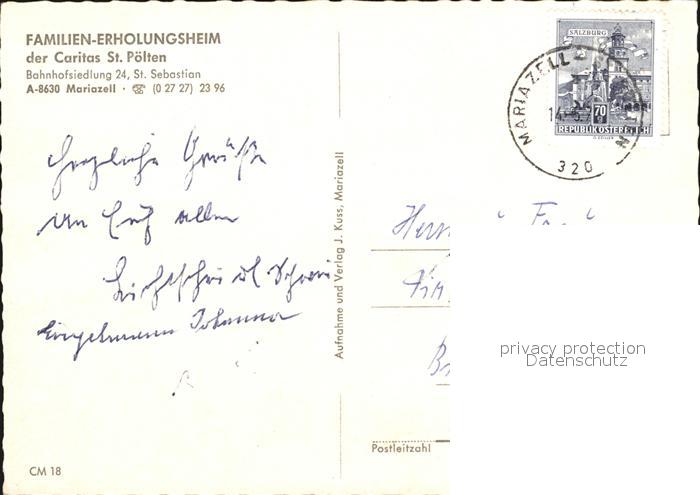 FAMILIEN-ERHOLUNGSHEIM
der Caritas St. Pölten
Bahnhofsiedlung 24, St. Sebastian
A-8630 Mariazell · ☎ (0 27 27) 23 96
SALZBURG
MARIAZELL
14.
70
REPUBLIK ÖSTERREICH
320
herzliche Grüße
an Euch allen
Johanna
Aufnahme und Verlag J. Kuss, Mariazell
Herrn
Fr
privacy protection
Datenschutz
Postleitzahl
CM 18